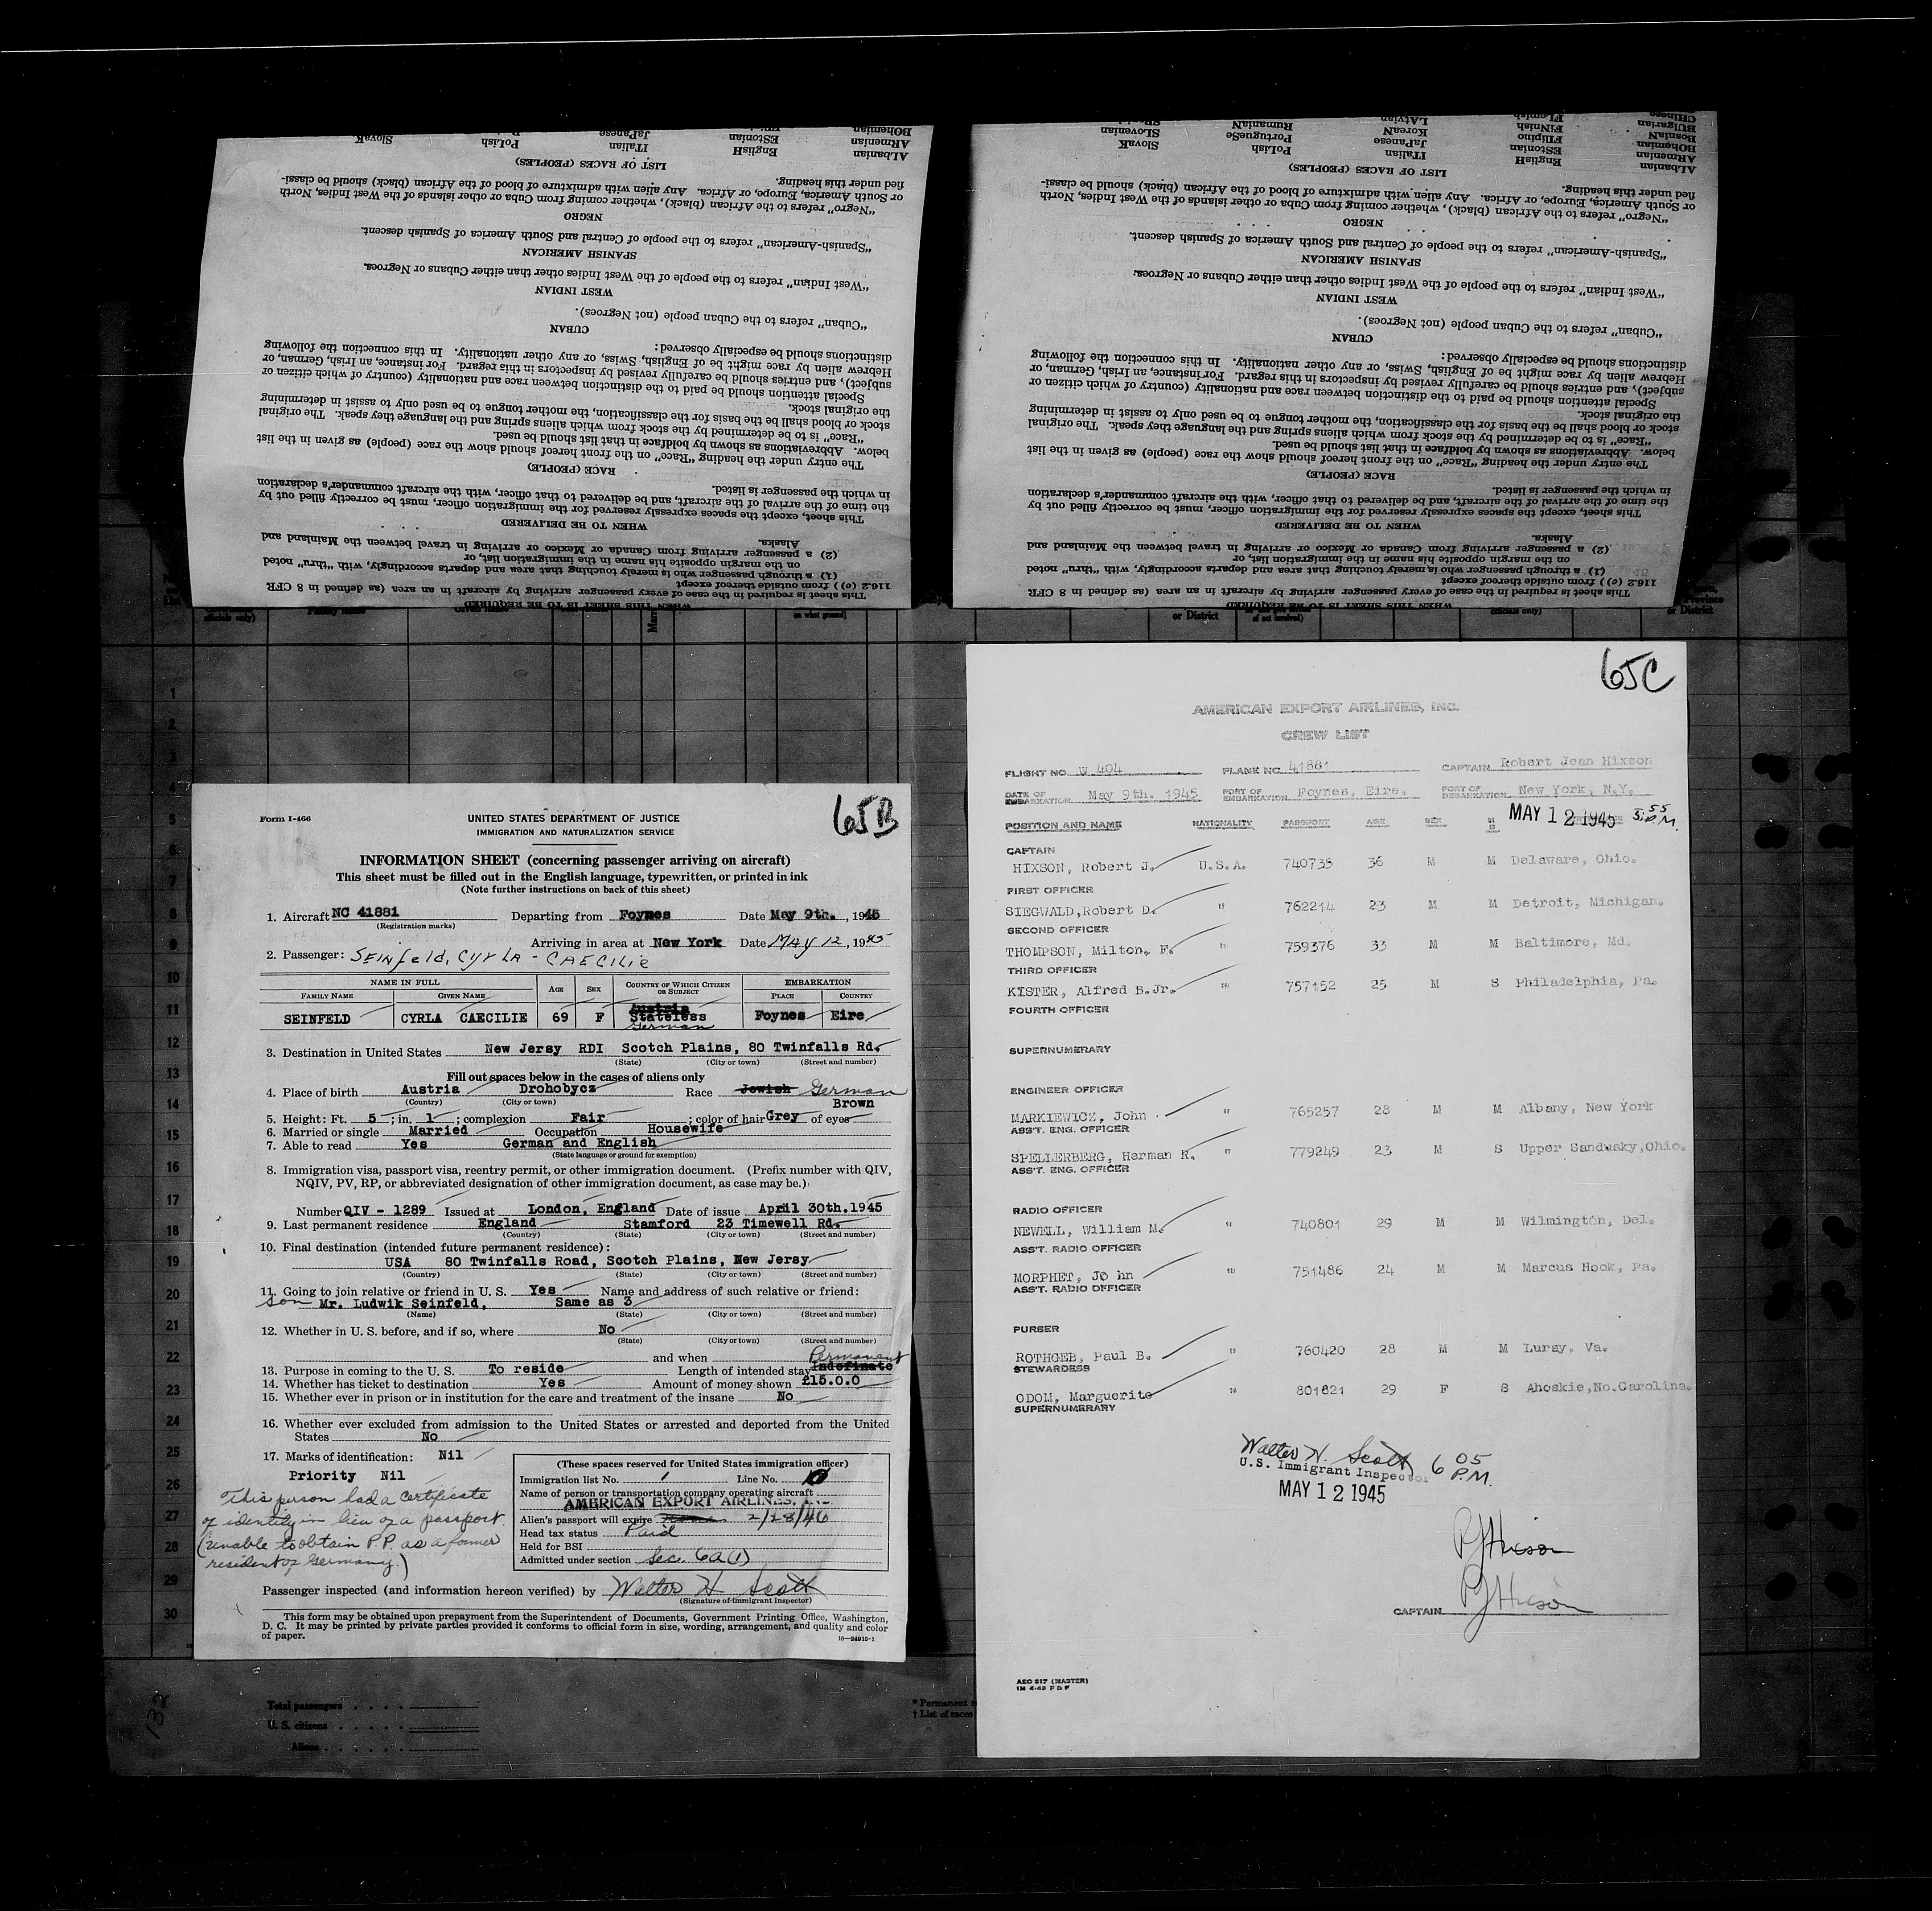 SlovaK
PoLish
JaPanese
ITalian
EStonian
EngliSH
BOhemian
ARmenian
ALbanian
LIST OF RACES (PEOPLES)
fied under this heading.
or South America, Europe, or Africa. Any alien with admixture of blood of the African (black) should be classi-
"Negro" refers to the African (black), whether coming from Cuba or other islands of the West Indies, North
NEGRO
"Spanish-American" refers to the people of Central and South America of Spanish descent.
SPANISH AMERICAN
"West Indian" refers to the people of the West Indies other than either Cubans or Negroes.
WEST INDIAN
"Cuban" refers to the Cuban people (not Negroes).
CUBAN
distinctions should be especially observed:
Hebrew alien by race might be of English, Swiss, or any other nationality. In this connection the following
subject), and entries should be carefully revised by inspectors in this regard. For instance, an Irish, German, or
Special attention should be paid to the distinction between race and nationality (country of which citizen or
the original stock.
stock or blood shall be the basis for the classification, the mother tongue to be used only to assist in determining
"Race" is to be determined by the stock from which aliens spring and the language they speak. The original
below. Abbreviations as shown by boldface in that list should be used.
The entry under the heading "Race" on the front hereof should show the race (people) as given in the list
RACE (PEOPLE)
in which the passenger is listed.
the time of the arrival of the aircraft, and be delivered to that officer, with the aircraft commander's declaration
This sheet, except the spaces expressly reserved for the immigration officer, must be correctly filled out by
WHEN TO BE DELIVERED
Alaska.
(2) a passenger arriving from Canada or Mexico or arriving in travel between the Mainland and
on the margin opposite his name in the immigration list, or
(1) a through passenger who is merely touching that area and departs accordingly, with "thru" noted
116.2 (e)) from outside thereof except
This sheet is required in the case of every passenger arriving by aircraft in an area (as defined in 8 CFR
WHEN THIS SHEET IS TO BE REQUIRED
SlovaK
SLOvenian
PoLish
PortugueSe
RumaniaN
ITalian
JaPanese
KoreaN
LATvian
EngliSH
EStonian
FIlipino
FINnish
FLemish
ALbanian
ARmenian
BOhemian
BosniaN
BUlgarian
CHinese
LIST OF RACES (PEOPLES)
fied under this heading.
or South America, Europe, or Africa. Any alien with admixture of blood of the African (black) should be classi-
"Negro" refers to the African (black), whether coming from Cuba or other islands of the West Indies, North
NEGRO
"Spanish-American" refers to the people of Central and South America of Spanish descent.
SPANISH AMERICAN
"West Indian" refers to the people of the West Indies other than either Cubans or Negroes.
WEST INDIAN
"Cuban" refers to the Cuban people (not Negroes).
CUBAN
distinctions should be especially observed:
Hebrew alien by race might be of English, Swiss, or any other nationality. In this connection the following
subject), and entries should be carefully revised by inspectors in this regard. For instance, an Irish, German, or
Special attention should be paid to the distinction between race and nationality (country of which citizen or
the original stock.
stock or blood shall be the basis for the classification, the mother tongue to be used only to assist in determining
"Race" is to be determined by the stock from which aliens spring and the language they speak. The original
below. Abbreviations as shown by boldface in that list should be used.
The entry under the heading "Race" on the front hereof should show the race (people) as given in the list
RACE (PEOPLE)
in which the passenger is listed.
the time of the arrival of the aircraft, and be delivered to that officer, with the aircraft commander's declaration
This sheet, except the spaces expressly reserved for the immigration officer, must be correctly filled out by
WHEN TO BE DELIVERED
Alaska.
(2) a passenger arriving from Canada or Mexico or arriving in travel between the Mainland and
on the margin opposite his name in the immigration list, or
(1) a through passenger who is merely touching that area and departs accordingly, with "thru" noted
116.2 (e)) from outside thereof except
This sheet is required in the case of every passenger arriving by aircraft in an area (as defined in 8 CFR
WHEN THIS SHEET IS TO BE REQUIRED
officials only)
on what ground)
or District
officials only)
Province
or District
1
2
3
4
5
6
7
8
9
10
11
12
13
14
15
16
17
18
19
20
21
22
23
24
25
26
27
28
29
30
65B
Form I-466
UNITED STATES DEPARTMENT OF JUSTICE
IMMIGRATION AND NATURALIZATION SERVICE
INFORMATION SHEET (concerning passenger arriving on aircraft)
This sheet must be filled out in the English language, typewritten, or printed in ink
(Note further instructions on back of this sheet)
1. Aircraft NC 41881 Departing from Foynes Date May 9th., 1945
(Registration marks)
Arriving in area at New York Date MAY 12, 1945
2. Passenger: SEINfeld, CYRLA - CAECILIE
NAME IN FULL AGE SEX COUNTRY OF WHICH CITIZEN OR SUBJECT EMBARKATION
FAMILY NAME GIVEN NAME PLACE COUNTRY
Austria
SEINFELD CYRLA CAECILIE 69 F Stateless Foynes Eire
German
3. Destination in United States New Jersy RDI Scotch Plains, 80 Twinfalls Rd.
(State) (City or town) (Street and number)
Fill out spaces below in the cases of aliens only
4. Place of birth Austria Drohobycz Race Jewish German
(Country) (City or town) Brown
5. Height: Ft. 5; in. 1; complexion Fair; color of hair Grey of eyes
6. Married or single Married Occupation Housewife
7. Able to read Yes German and English
(State language or ground for exemption)
8. Immigration visa, passport visa, reentry permit, or other immigration document. (Prefix number with QIV,
NQIV, PV, RP, or abbreviated designation of other immigration document, as case may be.)
Number QIV - 1289 Issued at London, England Date of issue April 30th.1945
9. Last permanent residence England Stamford 23 Timewell Rd.
(Country) (State) (City or town) (Street and number)
10. Final destination (intended future permanent residence):
USA 80 Twinfalls Road, Scotch Plains, New Jersy
(Country) (State) (City or town) (Street and number)
11. Going to join relative or friend in U. S. Yes Name and address of such relative or friend:
son Mr. Ludwik Seinfeld, Same as 3
(Name) (State) (City or town) (Street and number)
12. Whether in U. S. before, and if so, where No
(State) (City or town) (Street and number)
and when Permanant
13. Purpose in coming to the U. S. To reside Length of intended stay Indefinate
14. Whether has ticket to destination Yes Amount of money shown £15.0.0
15. Whether ever in prison or in institution for the care and treatment of the insane No
16. Whether ever excluded from admission to the United States or arrested and deported from the United
States No
17. Marks of identification: Nil
Priority Nil
This person had a certificate
of identity in lieu of a passport.
(unable to obtain P.P. as a former
resident of Germany.)
(These spaces reserved for United States immigration officer)
Immigration list No. 1 Line No. 10
Name of person or transportation company operating aircraft
AMERICAN EXPORT AIRLINES, INC.
Alien's passport will expire 2/28/46
Head tax status Paid
Held for BSI
Admitted under section Sec. 6a(1)
Passenger inspected (and information hereon verified) by Walter H Scott
(Signature of immigrant inspector)
This form may be obtained upon prepayment from the Superintendent of Documents, Government Printing Office, Washington,
D. C. It may be printed by private parties provided it conforms to official form in size, wording, arrangement, and quality and color
of paper.
16—24915-1
65C
AMERICAN EXPORT AIRLINES, INC.
CREW LIST
FLIGHT NO. W 404 PLANE NO. 41881 CAPTAIN Robert Jean Hixson
DATE OF EMBARKATION May 9th. 1945 PORT OF EMBARKATION Foynes, Eire. PORT OF DEBARKATION New York, N.Y.
MAY 12 1945 5:55 P.M.
POSITION AND NAME NATIONALITY PASSPORT AGE SEX M S
CAPTAIN
HIXSON, Robert J. U.S.A. 740735 36 M M Delaware, Ohio.
FIRST OFFICER
SIEGWALD, Robert D. " 762214 23 M M Detroit, Michigan.
SECOND OFFICER
THOMPSON, Milton, F. " 759376 33 M M Baltimore, Md.
THIRD OFFICER
KISTER, Alfred B.Jr. " 757152 25 M S Philadelphia, Pa.
FOURTH OFFICER
SUPERNUMERARY
ENGINEER OFFICER
MARKIEWICZ, John " 765257 28 M M Albany, New York
ASS'T. ENG. OFFICER
SPELLERBERG, Herman R. " 779249 23 M S Upper Sandusky,Ohio.
ASS'T. ENG. OFFICER
RADIO OFFICER
NEWELL, William M. " 740801 29 M M Wilmington, Del.
ASS'T. RADIO OFFICER
MORPHET, JO hn " 751486 24 M M Marcus Hook, Pa.
ASS'T. RADIO OFFICER
PURSER
ROTHGEB, Paul B. " 760420 28 M M Luray, Va.
STEWARDESS
ODOM, Marguerite " 801821 29 F S Ahoskie,No.Carolina.
SUPERNUMERARY
Walter H. Scott
U.S. Immigrant Inspector 6 05 P.M.
MAY 12 1945
RJHixson
RJHixson
CAPTAIN
AEO 517 (MASTER)
1M 4-43 P D F
132
Total passengers
U. S. citizens
Aliens
* Permanent
† List of races